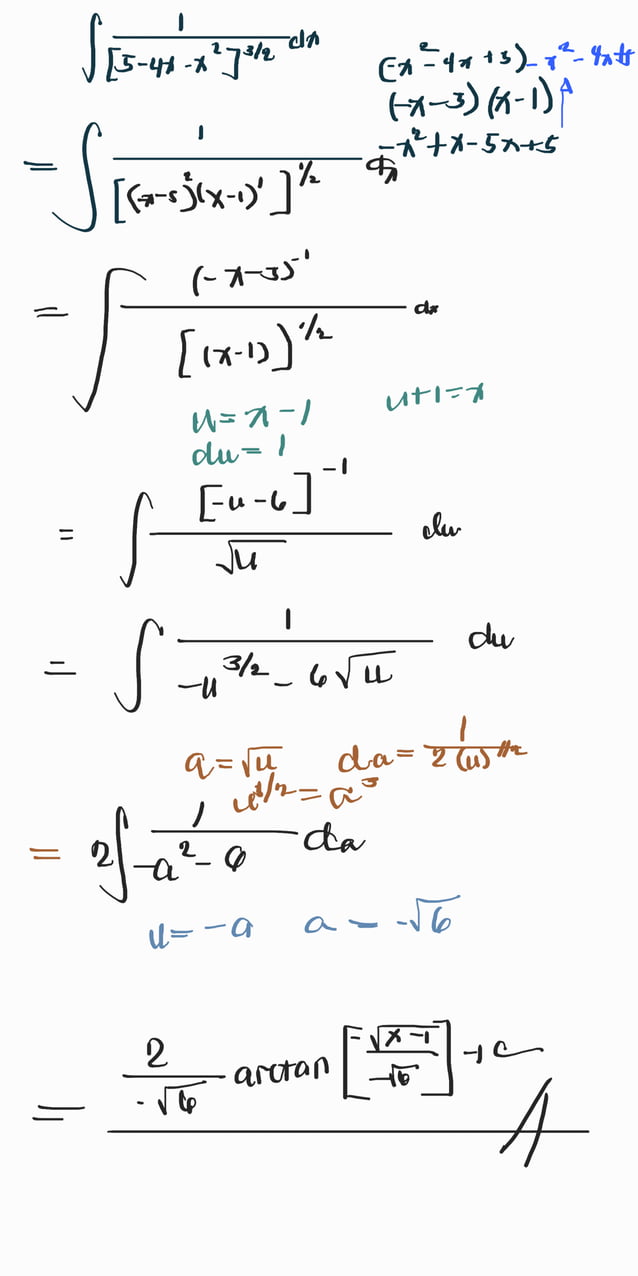 ∫ 1/[5-4x-x²]^{3/2} dx
(-x²-4x+5) -x²-4x+5
(-x-5)(x-1)
-x²+x-5x+5
= ∫ 1/[(-x-5)²(x-1)']^{1/2} dx
= ∫ (-x-5)^{-1}/[(x-1)]^{1/2} dx
u=x-1 u+1=x
du=1
= ∫ [-u-6]^{-1}/√u du
= ∫ 1/(-u^{3/2}-6√u) du
a=√u da=1/(2(u)^{1/2})
= 2∫ 1/(-a²-6) da
u=-a a=-√6
= 2/(-√6) arctan[-√(x-1)/(-√6)]+c